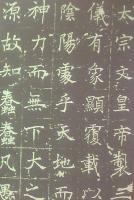 太宗文皇帝製三
儀有象顯覆載以
陰陽處乎天地而
神力而無下大之
源故知蠢蠢凡愚